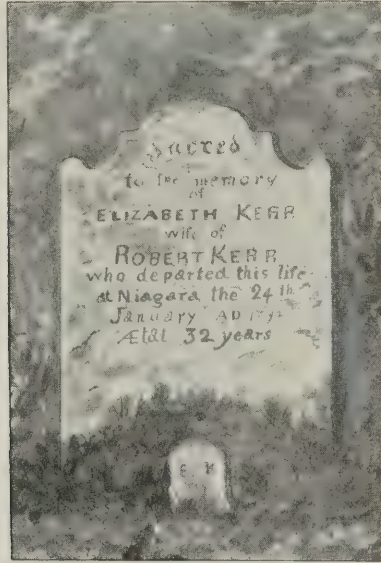 Sacred
to the memory
of
ELIZABETH KERR
wife of
ROBERT KERR
who departed this life
at Niagara the 24th
January AD
Ætat 32 years
E K